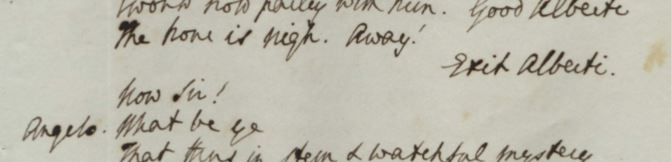 would now parley with him. Good Alberti
the hour is nigh. Away!
Exit Alberti.
Now Sir!
Angelo. What be ye
That thus in stern & watchful mystery